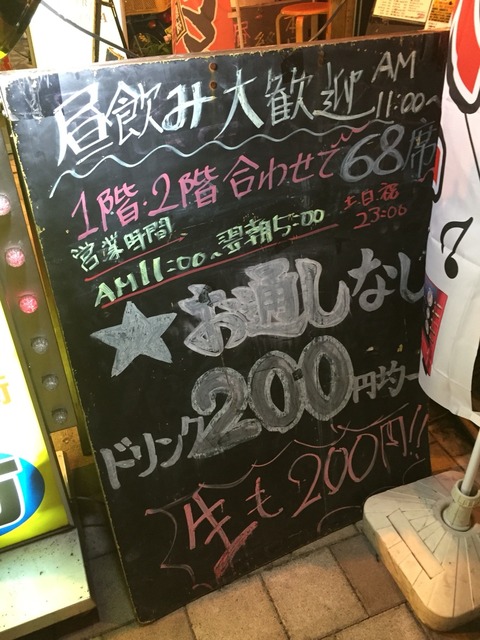 昼飲み大歓迎 AM 11:00~
1階・2階合わせて68席
営業時間
AM11:00~翌朝5:00
土・日・祝
23:00
★お通しなし
ドリンク200円均一
生も200円!!
7